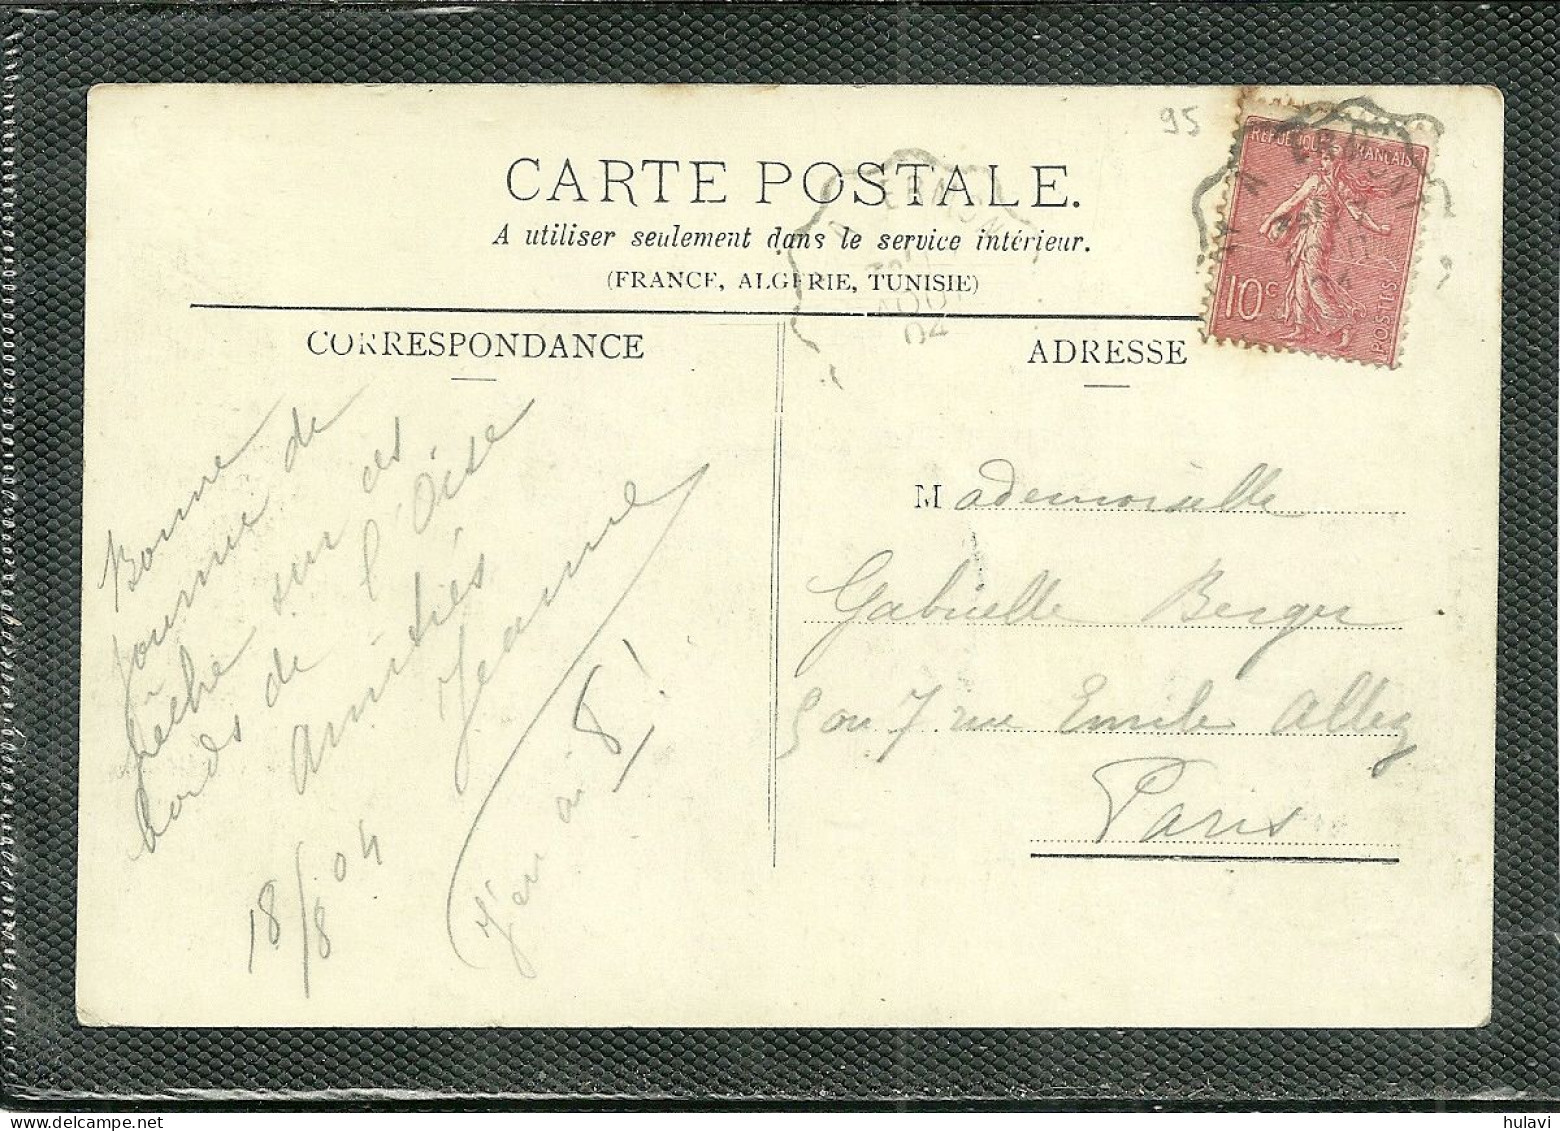 95
CARTE POSTALE.
A utiliser seulement dans le service intérieur.
(FRANCE, ALGERIE, TUNISIE)
CORRESPONDANCE
ADRESSE
REPUBLIQUE FRANÇAISE
10c
POSTES
ERMON
AOUT
04
ERMON
04
Bonne
journée de
pêche sur les
bords de l'Oise
amitiés
Jeanne
J'en ai 8!
18/8 04
Mademoiselle
Gabrielle Berger
5 ou 7 rue Emile Allez
Paris
hulavi